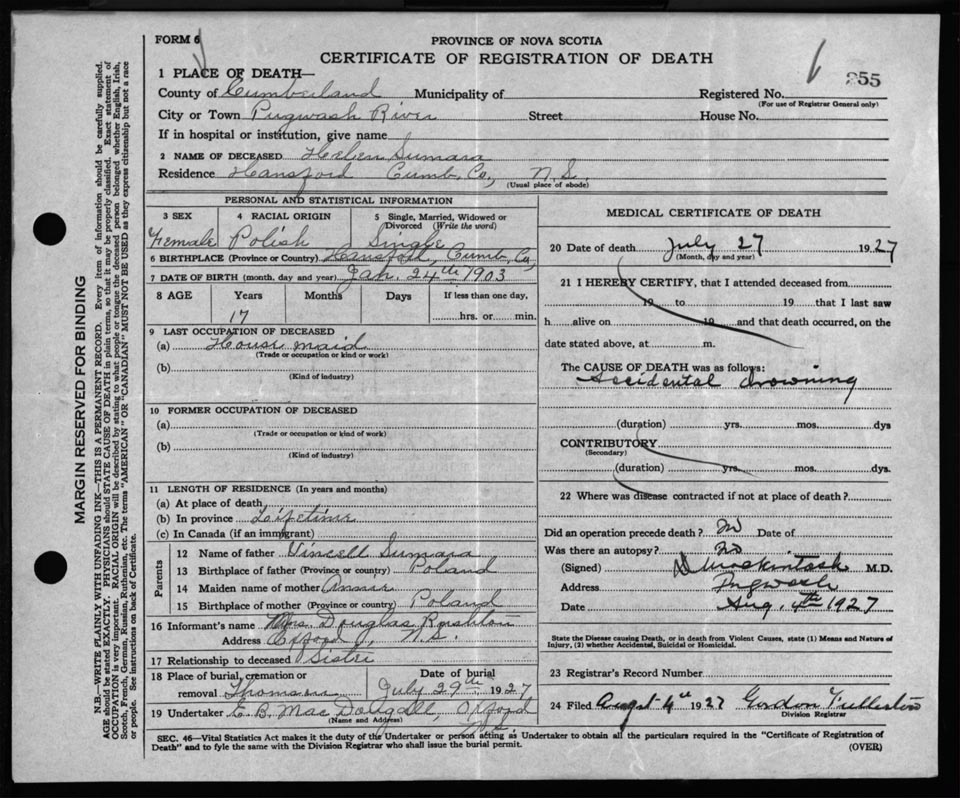 FORM 6
PROVINCE OF NOVA SCOTIA
CERTIFICATE OF REGISTRATION OF DEATH
255
1 PLACE OF DEATH—
County of Cumberland Municipality of Registered No.
(For use of Registrar General only)
City or Town Pugwash River Street House No.
If in hospital or institution, give name
2 NAME OF DECEASED Helen Sumara
Residence Hansford Cumb. Co., N.S.
(Usual place of abode)
PERSONAL AND STATISTICAL INFORMATION
3 SEX 4 RACIAL ORIGIN 5 Single, Married, Widowed or Divorced (Write the word)
Female Polish Single
6 BIRTHPLACE (Province or Country) Hansford, Cumb. Co,
7 DATE OF BIRTH (month, day and year) Jan. 24th 1903
8 AGE Years Months Days If less than one day,
17 hrs. or min.
9 LAST OCCUPATION OF DECEASED
(a) House maid
(Trade or occupation or kind or work)
(b)
(Kind of industry)
10 FORMER OCCUPATION OF DECEASED
(a)
(Trade or occupation or kind of work)
(b)
(Kind of industry)
11 LENGTH OF RESIDENCE (In years and months)
(a) At place of death
(b) In province Lifetime
(c) In Canada (if an immigrant)
Parents
12 Name of father Vincell Sumara
13 Birthplace of father (Province or country) Poland
14 Maiden name of mother Annie
15 Birthplace of mother (Province or country) Poland
16 Informant's name Mrs. Douglas
Address Oxford, N.S.
17 Relationship to deceased Sister
18 Place of burial, cremation or Date of burial
removal Thomson July 29th 1927
19 Undertaker E. B. MacDougall, Oxford
(Name and Address) N.S.
MEDICAL CERTIFICATE OF DEATH
20 Date of death July 27 1927
(Month, day and year)
21 I HEREBY CERTIFY, that I attended deceased from
19 to 19 that I last saw
h alive on 19 and that death occurred, on the
date stated above, at m.
The CAUSE OF DEATH was as follows:
Accidental drowning
(duration) yrs. mos. dys
CONTRIBUTORY
(Secondary)
(duration) yrs. mos. dys.
22 Where was disease contracted if not at place of death?
Did an operation precede death? No Date of
Was there an autopsy? No
(Signed) Mackintosh M.D.
Address Pugwash
Date Aug. 4th 1927
State the Disease causing Death, or in death from Violent Causes, state (1) Means and Nature of
Injury, (2) whether Accidental, Suicidal or Homicidal.
23 Registrar's Record Number
24 Filed August 4th 1927 Gordon
Division Registrar
SEC. 46—Vital Statistics Act makes it the duty of the Undertaker or person acting as Undertaker to obtain all the particulars required in the "Certificate of Registration of
Death" and to fyle the same with the Division Registrar who shall issue the burial permit.
(OVER)
MARGIN RESERVED FOR BINDING
N.B.—WRITE PLAINLY WITH UNFADING INK—THIS IS A PERMANENT RECORD. Every item of information should be carefully supplied.
AGE should be stated EXACTLY. PHYSICIANS should STATE CAUSE OF DEATH in plain terms, so that it may be properly classified. Exact statement of
OCCUPATION is very important. RACIAL ORIGIN will be described by stating to what people or tongue the deceased person belonged whether English, Irish,
Scotch, French, German, Russian, Ruthenian, etc. The terms "AMERICAN" OR "CANADIAN" MUST NOT BE USED as they express citizenship but not a race
or people. See instructions on back of Certificate.